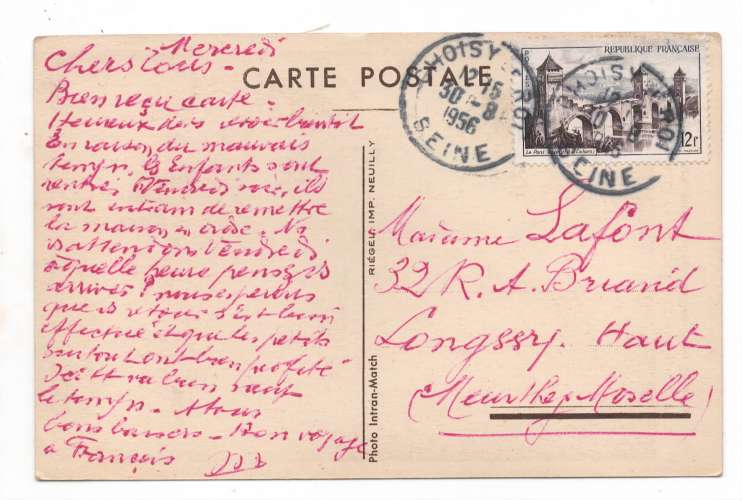 Mercredi
Chers tous -
CARTE POSTALE
Bien reçu carte -
Heureux de vous bientôt
En raison du mauvais
temps, les Enfants sont
rentrés Vendredi soir, ils
sont en train de remettre
la maison en
attendons Vendredi
à quelle heure pensez
arriver ? nous espérons
que retour s'est bien
effectué et que les petits
surtout ont bien profité
Ici tt va bien sauf
le temps - A tous
bons baisers - Bon voyage
à François
CHOISY-LE-ROI
2-15
30-8
1956
SEINE
REPUBLIQUE FRANÇAISE
POSTES
12F
Le Pont Valentré à Cahors
CHOISY-LE-ROI
SEINE
RIÉGEL, IMP. NEUILLY
Photo Intran-Match
Madame Lafont
32 R. A. Briand
Longwy. Haut
(Meurthe & Moselle)